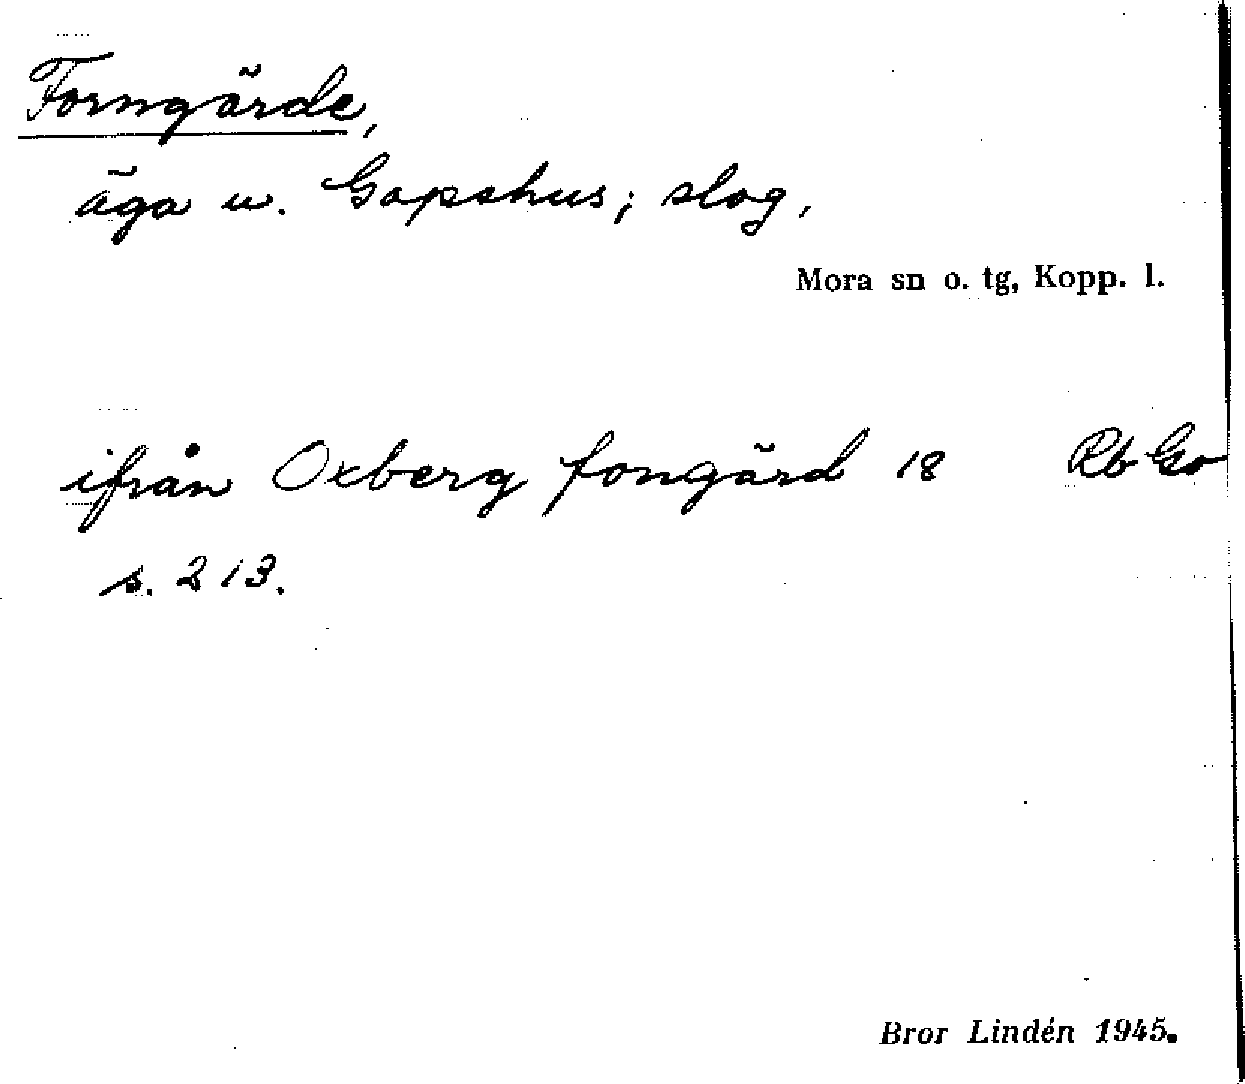 Forngärde,
äga u. Gopshus; slog,
Mora sn o. tg, Kopp. l.
ifrån Oxberg fongärd 18 Rb Go
s. 213.
Bror Lindén 1945.